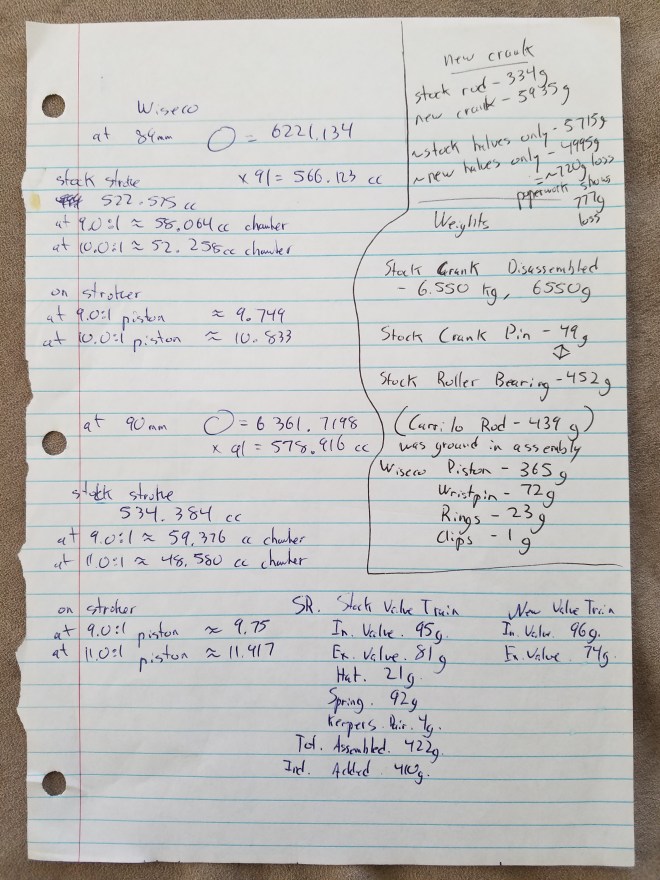 Wiseco
at 89mm = 6221.134
stock stroke × 91 = 566.123 cc
522.575 cc
at 9.0:1 ≈ 58.064 cc chamber
at 10.0:1 ≈ 52.258cc chamber
on stroker
at 9.0:1 piston ≈ 9.749
at 10.0:1 piston ≈ 10.833
at 90mm = 6361.7198
× 91 = 578.916 cc
stock stroke
534.384 cc
at 9.0:1 ≈ 59.376 cc chamber
at 11.0:1 ≈ 48.580 cc chamber
on stroker
at 9.0:1 piston ≈ 9.75
at 11.0:1 piston ≈ 11.917
new crank
stock rod - 334g
new crank - 5935g
~stock halves only - 5715g
~new halves only - 4995g
= ~720g loss
paperwork shows
777g
loss
Weights
Stock Crank Disassembled
- 6.550 kg, 6550g
Stock Crank Pin - 49g
Stock Roller Bearing - 452g
(Carrilo Rod - 439g)
was ground in assembly
Wiseco Piston - 365g
Wristpin - 72g
Rings - 23g
Clips - 1g
SR. Stock Valve Train
In. Valve. 95g.
Ex. Valve. 81g
Hat. 21g.
Spring. 92g
Keepers. Pair. 4g.
Tot. Assembled. 422g.
Ind. Added 410g.
New Valve Train
In. Valve. 96g.
Ex. Valve. 74g.